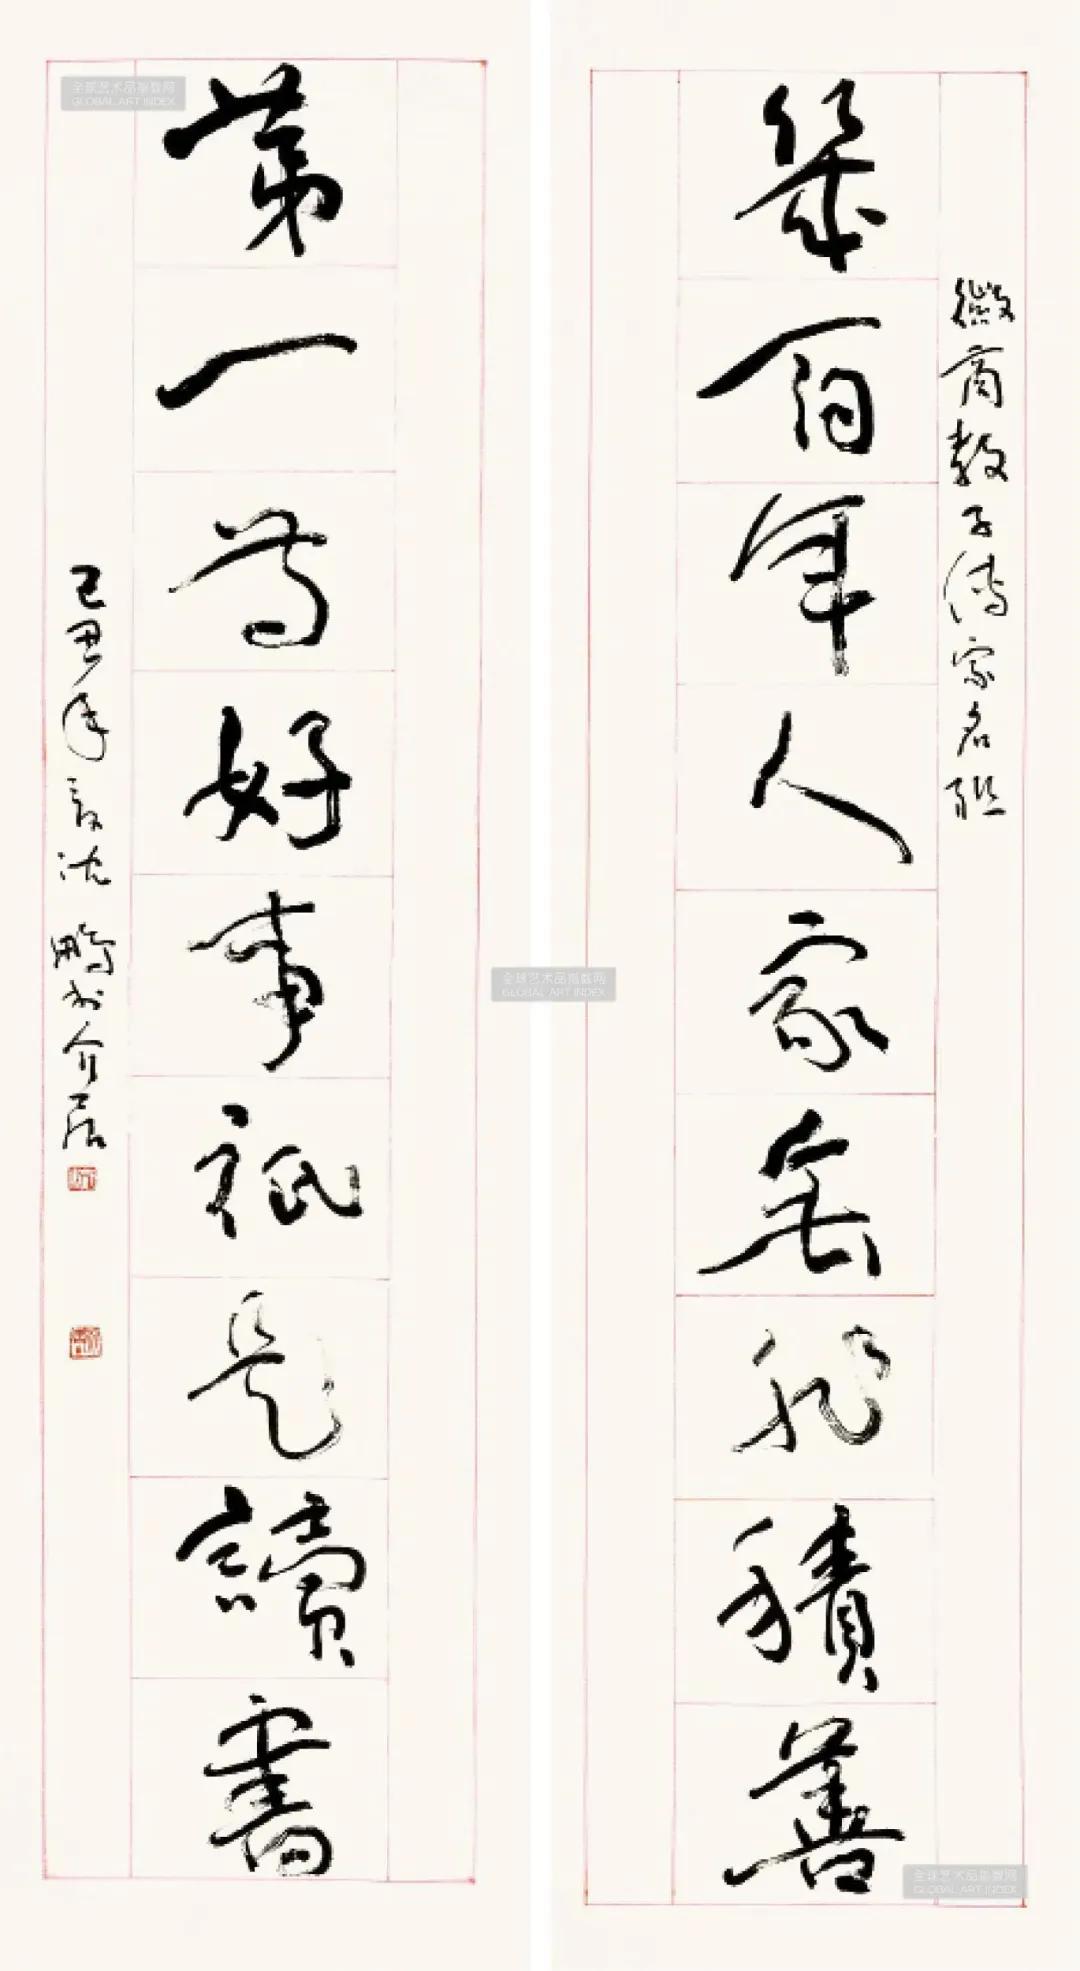 徽商教子傳家名聯
幾百年人家無非積善
第一等好事祇是讀書
己丑年 沈鵬於介居
全球艺术品指数网
GLOBAL ART INDEX
全球艺术品指数网
GLOBAL ART INDEX
全球艺术品指数网
GLOBAL ART INDEX